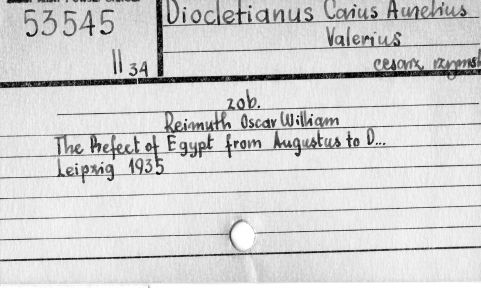 53545
II 34
Diocletianus Caius Aurelius
Valerius
cesarz rzymski
zob.
Reimuth Oscar William
The Prefect of Egypt from Augustus to D...
Leipzig 1935